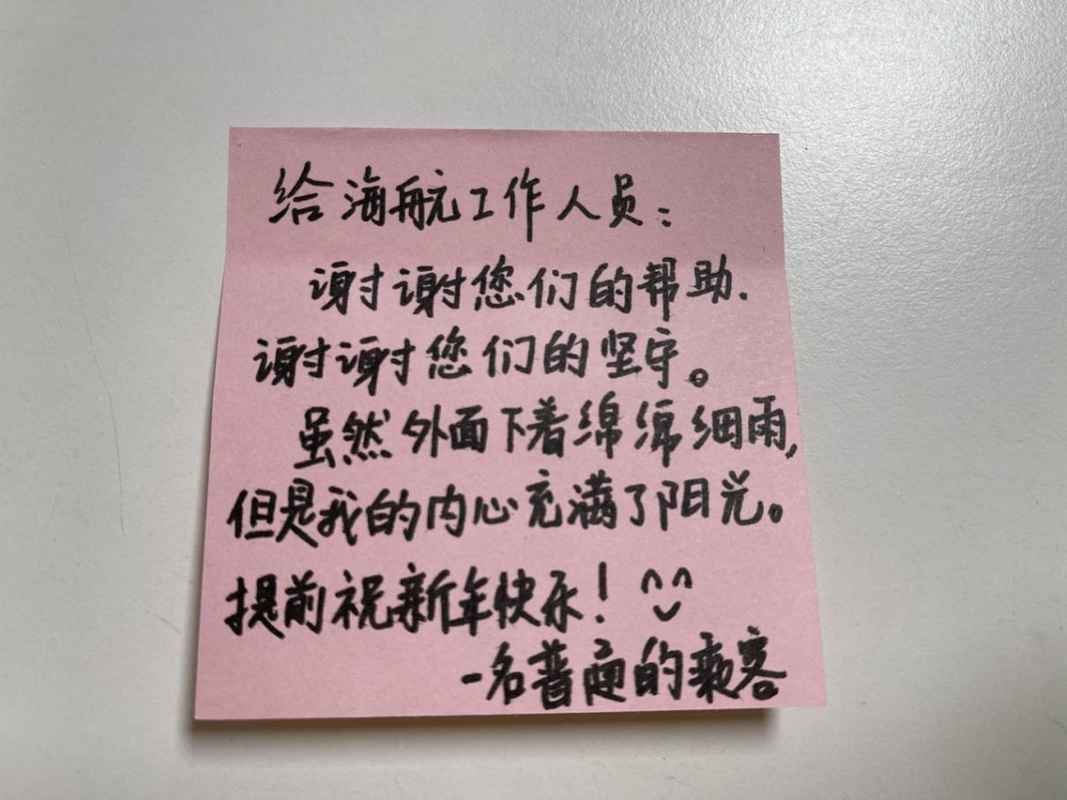 给海航工作人员：
谢谢您们的帮助.
谢谢您们的坚守。
虽然外面下着绵绵细雨,
但是我的内心充满了阳光。
提前祝新年快乐！^^
一名普通的乘客